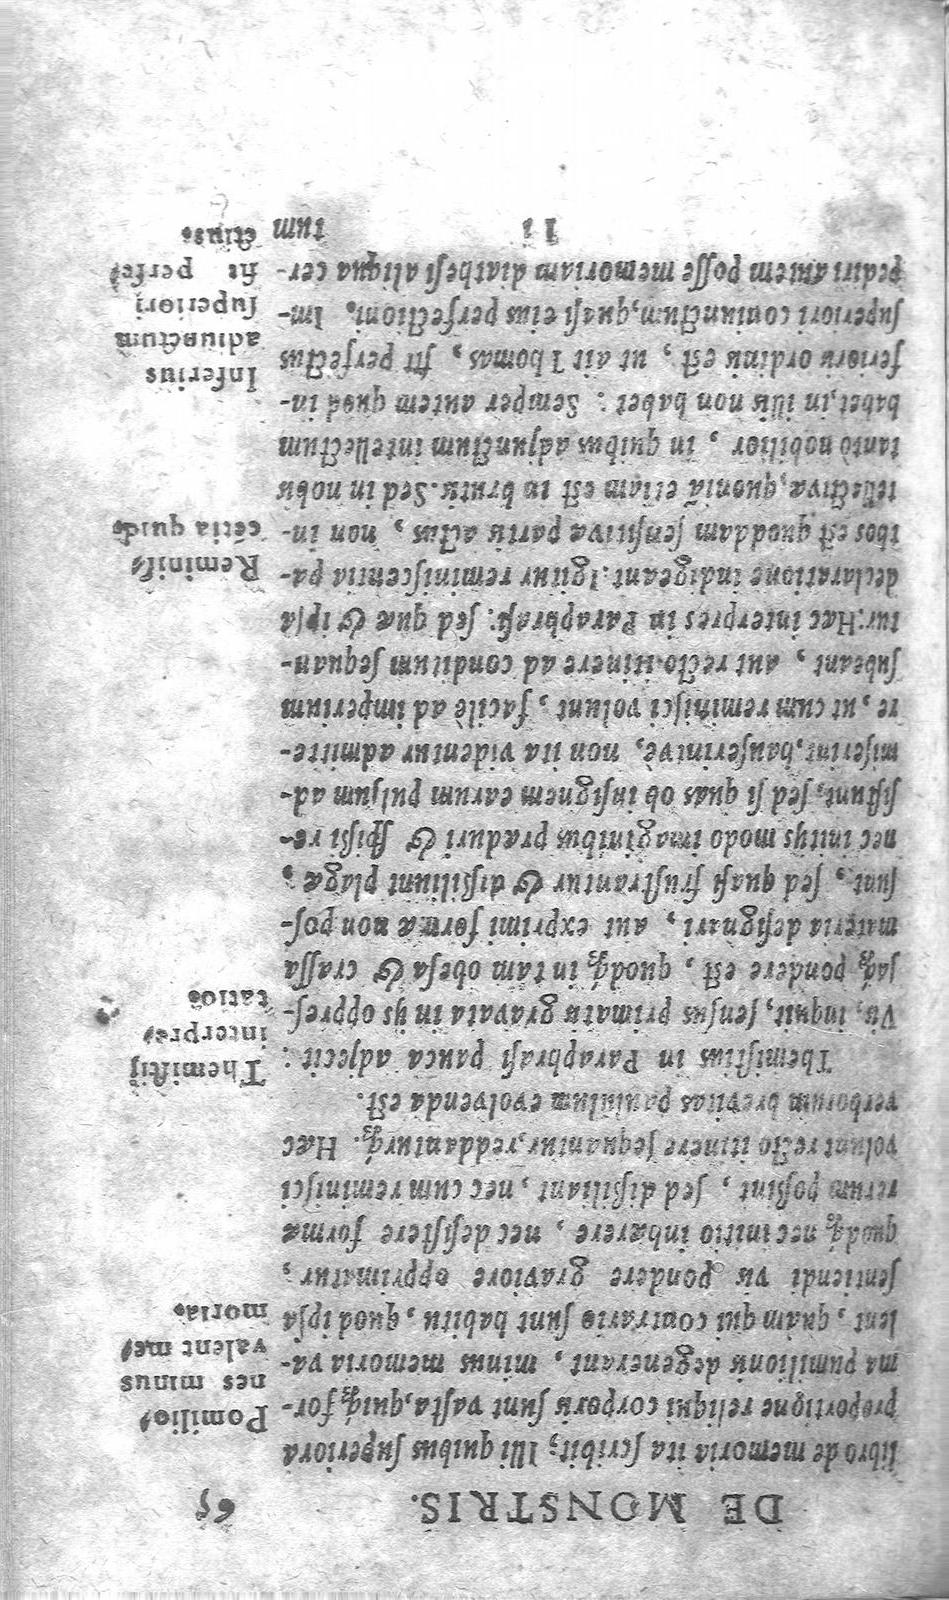 DE MONSTRIS. 65
libro de memoria ita scribit; Illi quibus superiora
proportione reliqui corporis sunt vasta, quiq́ꝫ for-
ma pumilionis degenerant, minus memoria va-
lent, quàm qui contrario sunt habitu, quod ipsa
sentiendi vis pondere graviore opprimatur,
quodq́ꝫ nec initio inhærere, nec desistere formæ
rerum poßint, sed dißiliant, nec cum reminisci
volunt recto itinere sequantur, reddanturq́ꝫ. Hæc
verborum brevitas paululum evolvenda est.
Themistius in Paraphrasi pauca adjecit:
Vis, inquit, sensus primatis gravata in ijs oppres-
saq́ꝫ pondere est, quodq́ꝫ in tam obesa & crassa
materia designari, aut exprimi formæ non pos-
sunt, sed quasi frustrantur & dißiliunt plagæ,
nec initijs modo imaginibus præduri & spißi re-
sistunt, sed si quas ob insignem earum pulsum ad-
miserint, hauserintvè, non ita videntur admitte-
re, ut cum reminisci volunt, facilè ad imperium
subeant, aut recto itinere ad conditum sequan-
tur: Hæc interpres in Paraphrasi: sed quæ & ipsa
declaratione indigeant: Igitur reminiscentia pa-
thos est quoddam sensitivæ partis actus, non in-
tellectivæ, quoniã etiam est in brutis. Sed in nobis
tantò nobilior, in quibus adjunctum intellectum
habet, in illis non habet: Semper autem quod in-
ferioris ordinis est, ut ait Thomas, fit perfectius
superiori coniunctum, quasi eius perfectioni. Im-
pediri autem posse memoriam diathesi aliqua cer-
I i tum
Pomilio⸗
nes minus
valent me⸗
moria.
Themistij
interpre⸗
tatio.
Reminis⸗
cẽtia quid.
Inferius
adiunctum
superiori
fit perfe⸗
ctius.